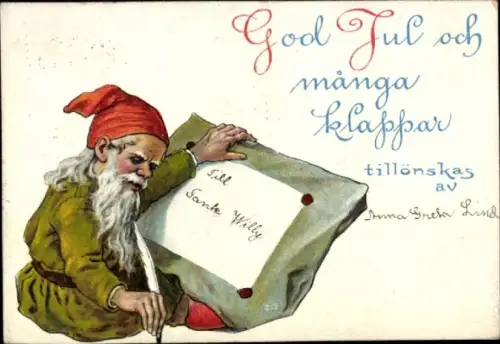 God Jul och
många
klappar
tillönskas
av
Anna Greta Lind
Till
Santa Willy